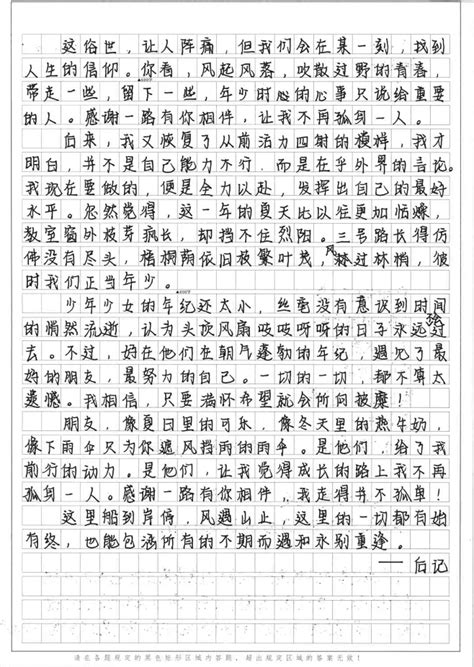 这俗世，让人阵痛，但我们会在某一刻，找到
人生的信仰。你看，风起风落，吹散过野的青春，
带走一些，留下一些，年少时心的心事只说给重要
的人。感谢一路有你相伴，让我不再孤身一人。
后来，我又恢复了从前活力四射的模样，我才
明白，并不是自己能力不行，而是在乎外界的言论。
我现在要做的，便是全力以赴，发挥出自己的最好
水平。忽然觉得，这一年的夏天比以往更加恬燥，
教室窗外枝芽疯长，却挡不住烈阳。三号路长得仿
佛没有尽头，梧桐荫依旧枝繁叶茂，风 过林梢，彼
时我们正当年少。
少年少女的年纪还太小，丝毫没有意识到时间
的悄然流逝，认为头顶风扇吱吱呀呀的日子永远 过
去。不过，好在他们在朝气蓬勃的年纪，遇见了最
好的朋友，最努力的自己。一切的一切，都不算太
遗憾。我相信，只要满怀希望就会所向披靡！
朋友，像夏日里的可乐，像冬天里的热牛奶，
像下雨 只为你遮风挡雨的雨伞。是他们，给了我
前行的动力。是他们，让我觉得成长的路上我不再
孤身一人。感谢一路有你相伴，我走得并不孤单！
这里船到岸停，风遇山止，这里的一切都有始
有终，也能包涵所有的不期而遇和永别重逢。
——后记
请在各题规定的黑色矩形区域内答题，超出规定区域的答案无效！